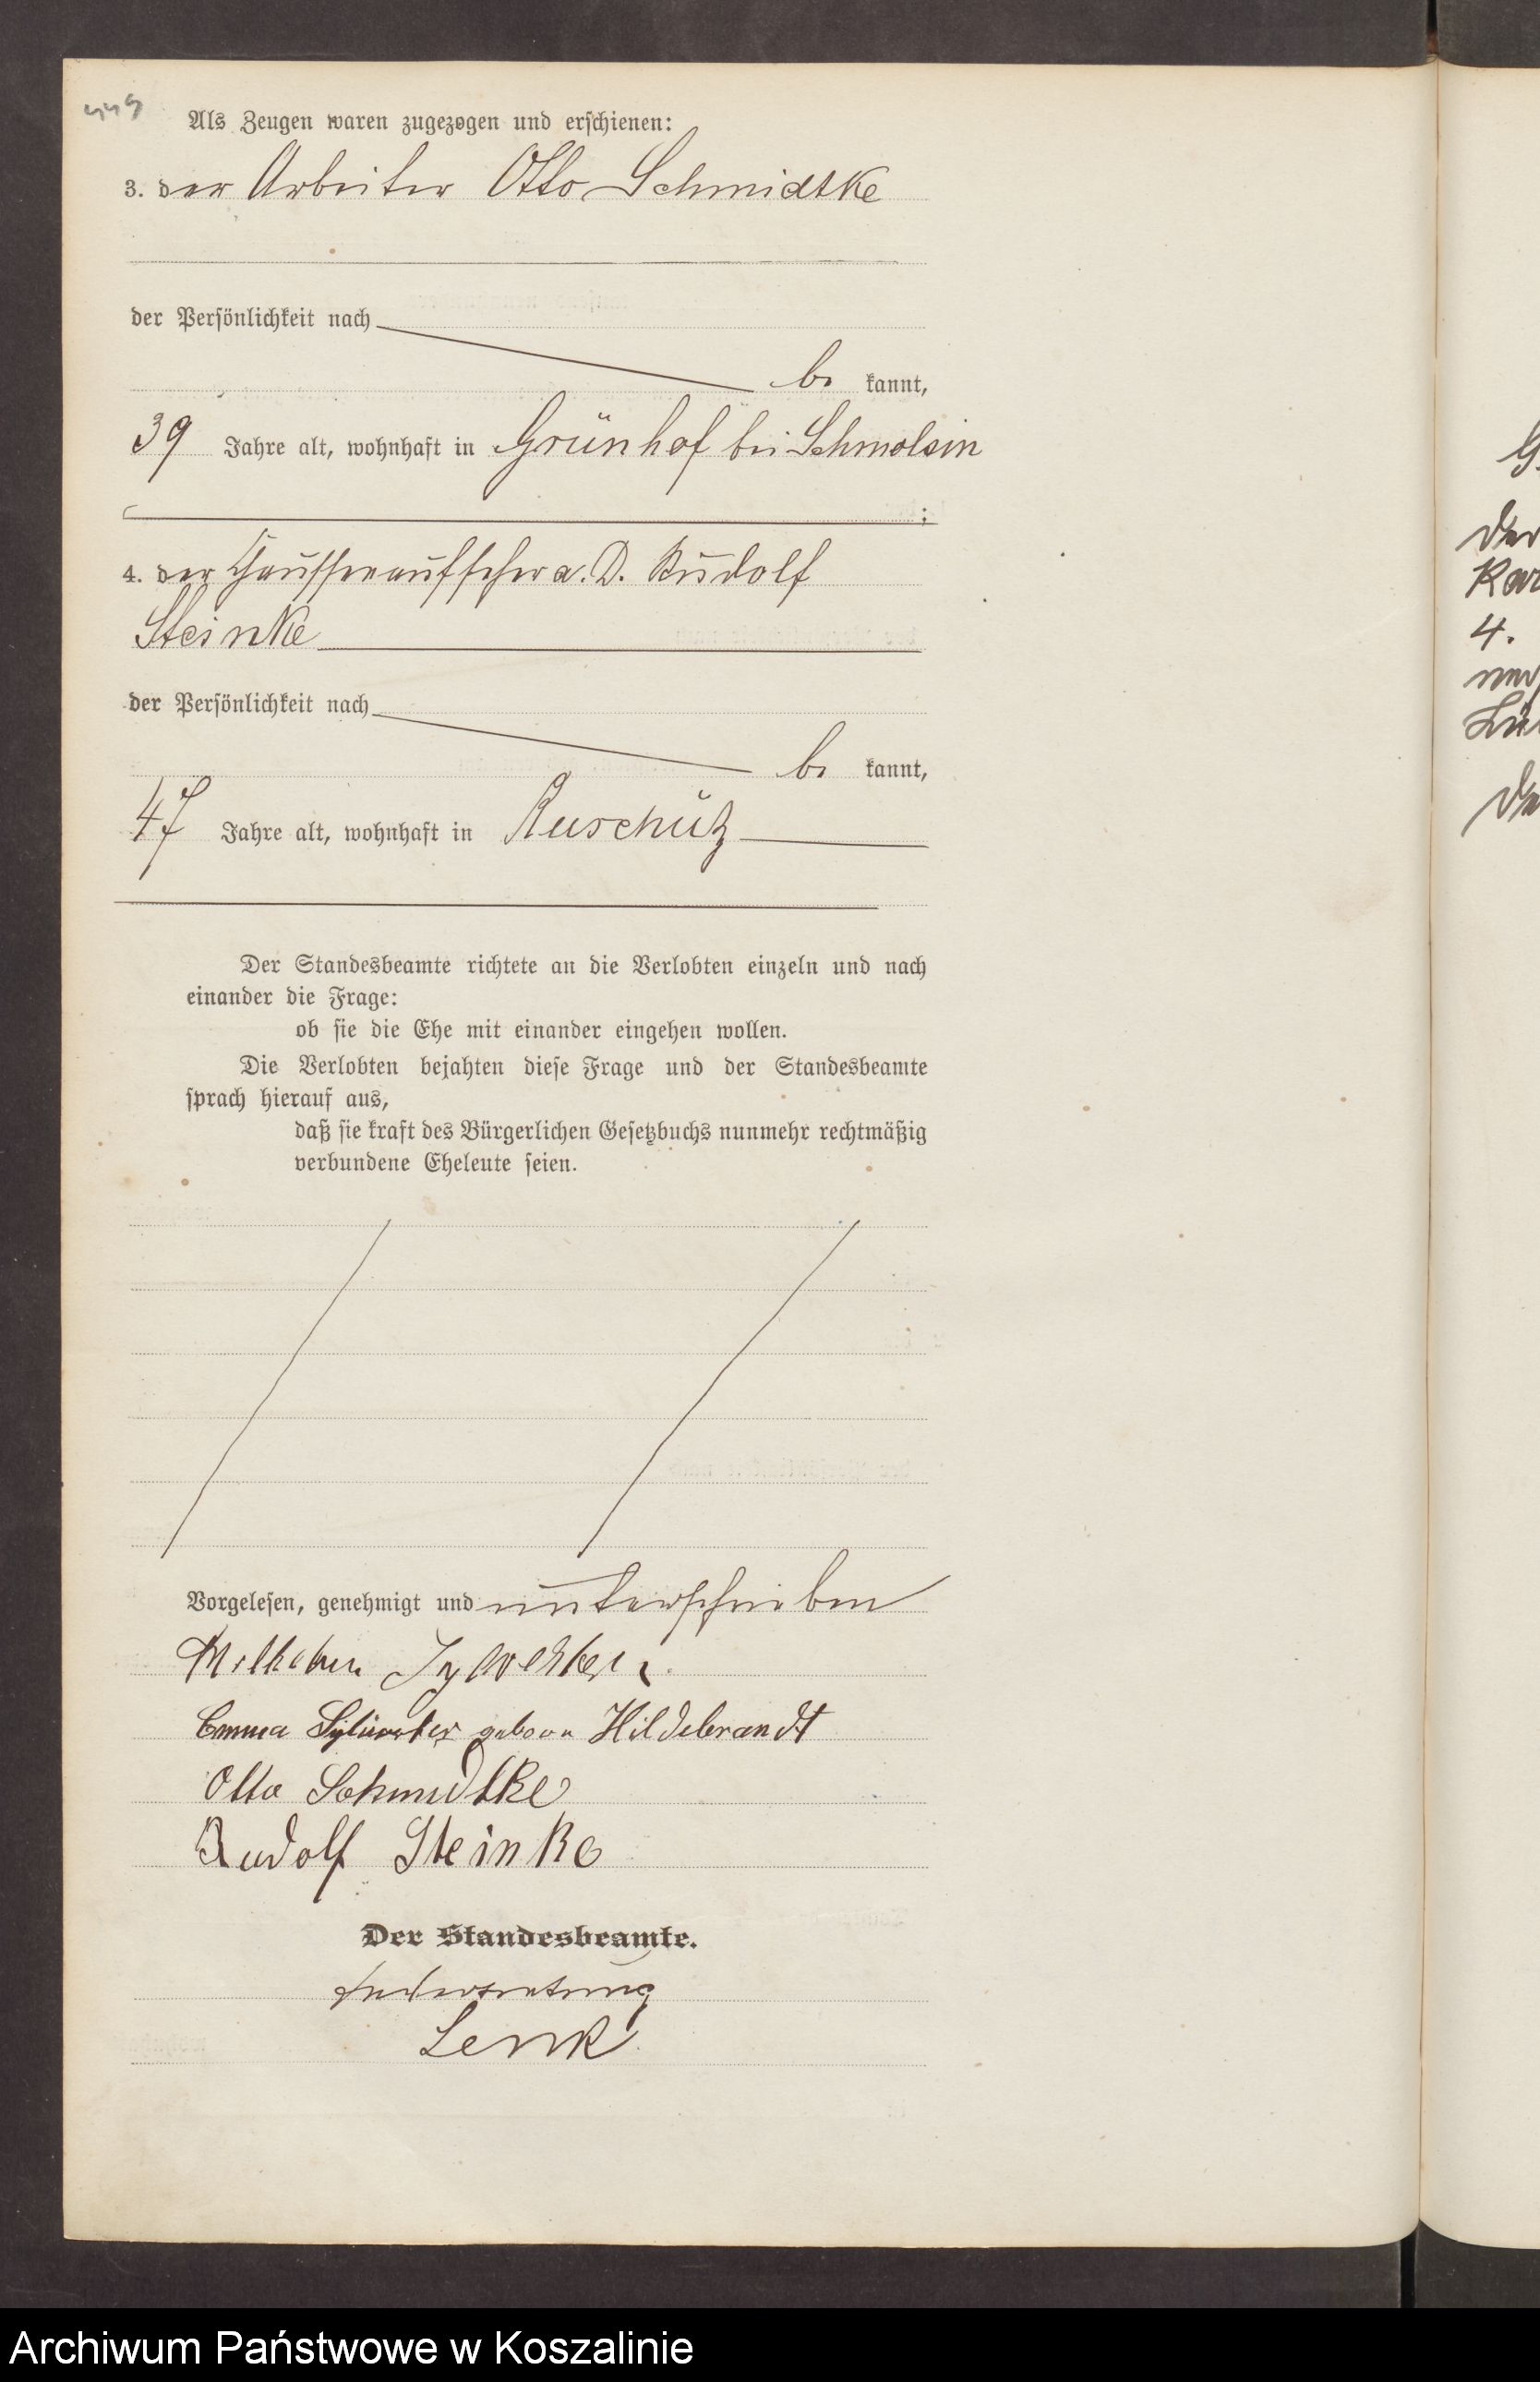 449
Als Zeugen waren zugezogen und erschienen:
3. der Arbeiter Otto Schmidtke
der Persönlichkeit nach
be kannt,
39 Jahre alt, wohnhaft in Grünhof bei Schmolsin
;
4. der Chausseeaufseher a. D. Rudolf
Steinke
der Persönlichkeit nach
be kannt,
47 Jahre alt, wohnhaft in Ruschütz
Der Standesbeamte richtete an die Verlobten einzeln und nach
einander die Frage:
ob sie die Ehe mit einander eingehen wollen.
Die Verlobten bejahten diese Frage und der Standesbeamte
sprach hierauf aus,
daß sie kraft des Bürgerlichen Gesetzbuchs nunmehr rechtmäßig
verbundene Eheleute seien.
Vorgelesen, genehmigt und unterschrieben
Wilhelm Sylvester
Emma Sylvester geborn Hildebrandt
Otto Schmidtke
Rudolf Steinke
Der Standesbeamte.
In Vertretung
Lenk
Archiwum Państwowe w Koszalinie